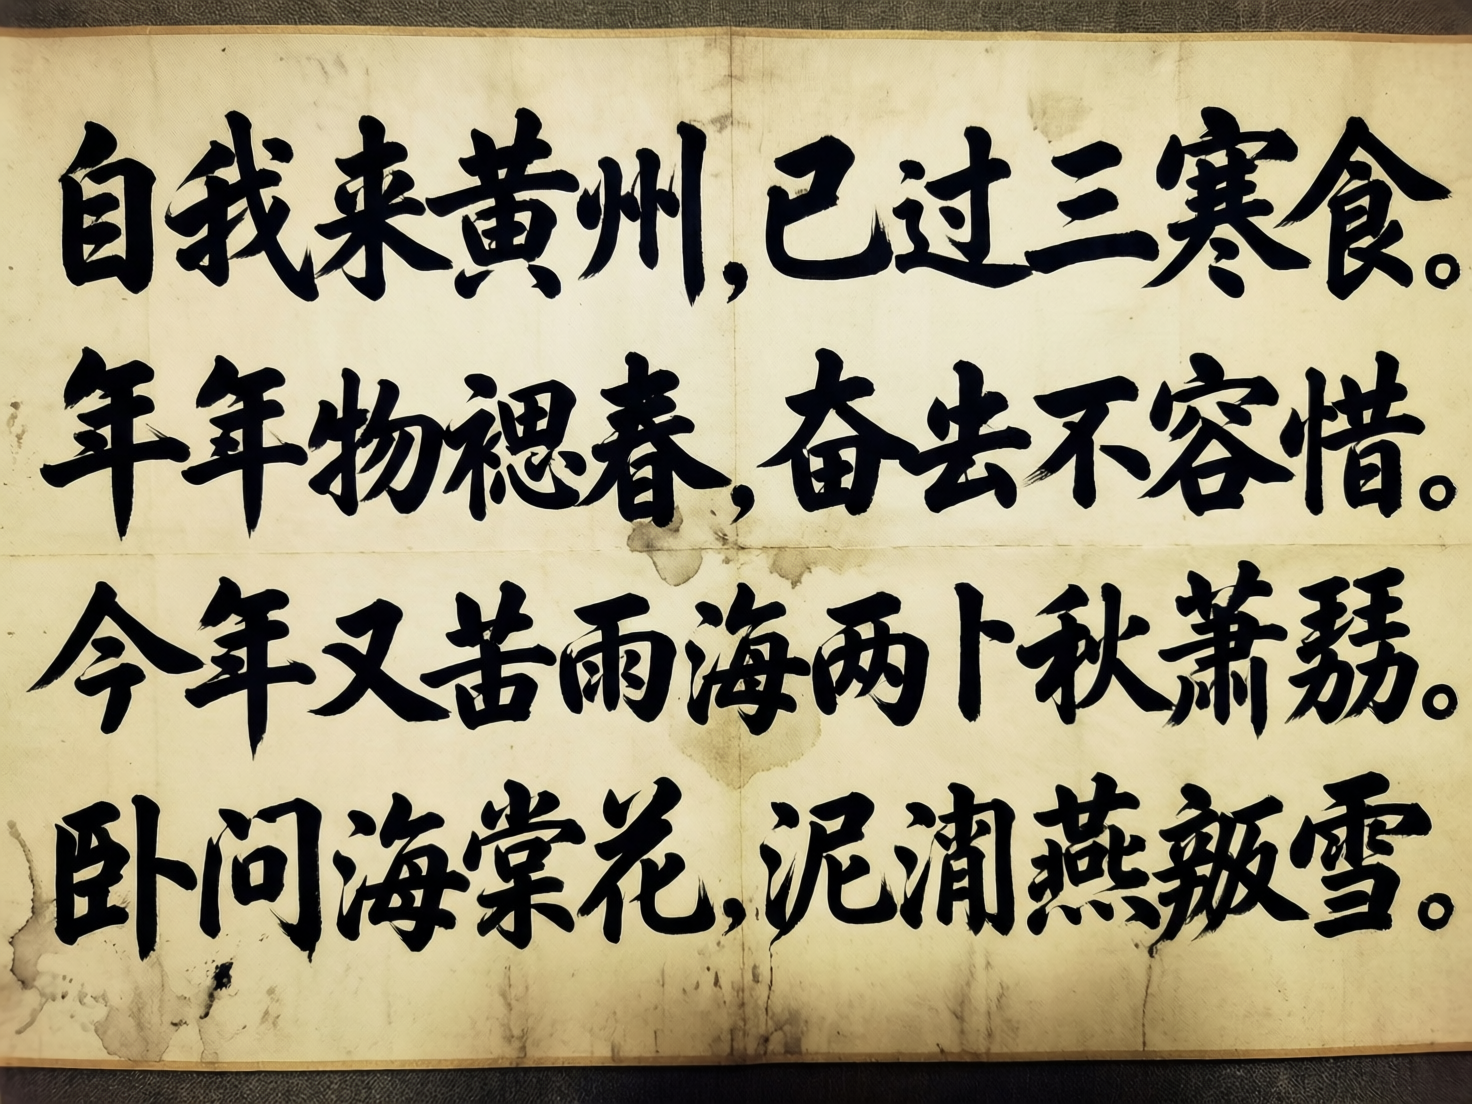 自我来黄州,已过三寒食。
年年物春,奋不容惜。
今年又苦雨海两卜秋蕭。
卧问海棠花,泥燕雪。